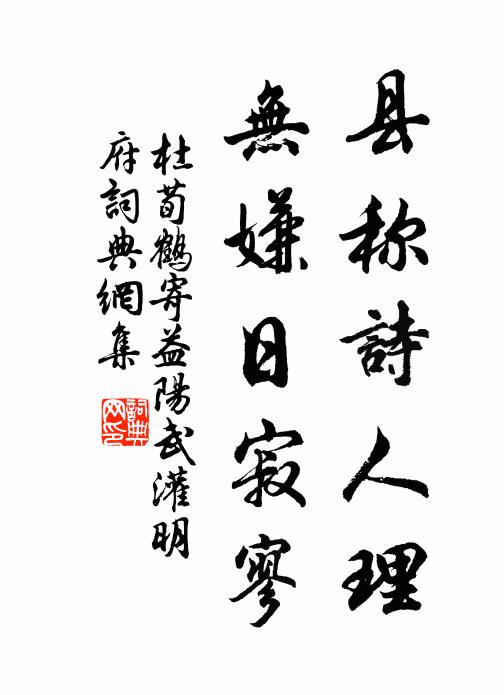 县称詩人理
無嫌日寂寥
杜荀鶴寄益陽武灌明
府詞典網集
詞典
网印